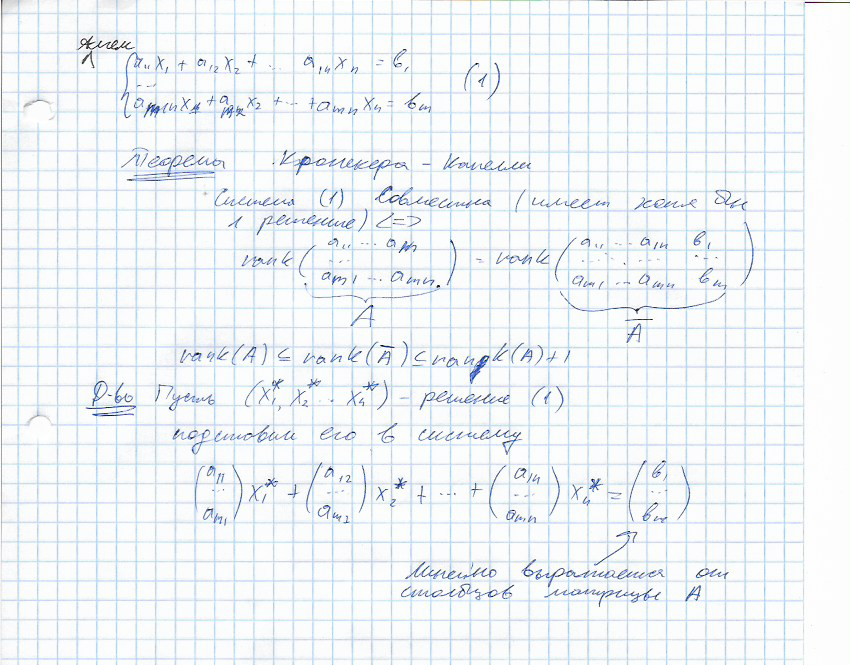 { a₁₁x₁ + a₁₂x₂ + ... a₁ₙxₙ = b₁
... (1)
aₘ₁x₁ + aₘ₂x₂ + ... + aₘₙxₙ = bₘ
Теорема Кронекера - Капелли
Система (1) совместна (имеет хотя бы
1 решение) <=>
rank (a₁₁ ... a₁ₙ ... aₘ₁ ... aₘₙ) = rank (a₁₁ ... a₁ₙ b₁ ... aₘ₁ ... aₘₙ bₘ)
A A̅
rank(A) ≤ rank(A̅) ≤ rank(A)+1
Д-во Пусть (x₁*, x₂* ... xₙ*) - решение (1)
подставим его в систему
(a₁₁ ... aₘ₁) x₁* + (a₁₂ ... aₘ₂) x₂* + ... + (a₁ₙ ... aₘₙ) xₙ* = (b₁ ... bₘ)
Линейно выражается от
столбцов матрицы A